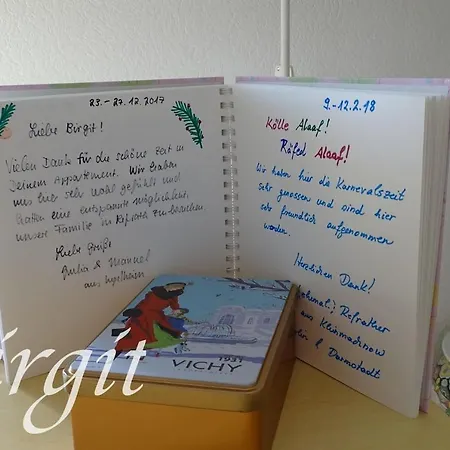 23. - 27.12.2017
Liebe Birgit!
Vielen Dank für die schöne Zeit in
Deinem Appartement. Wir haben
uns hier sehr wohl gefühlt und
hatten eine entspannte Möglichkeit,
unsere Familie in zu besuchen.
Liebe Grüße
Julia & Manuel
aus Ingelheim
9.-12.2.18
Kölle Alaaf!
Räfed Alaaf!
Wir haben hier die Karnevalszeit
sehr genossen und sind hier
sehr freundlich aufgenommen
worden.
Herzlichen Dank!
Refrather
aus Kleinmachnow
& Darmstadt
1937
VICHY
irgit